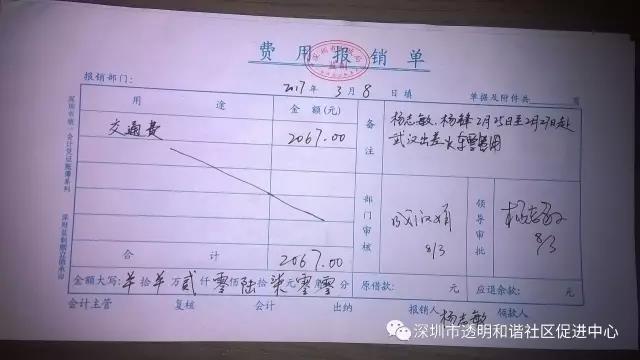 费用报销单
报销部门：
2017年3月8日填
单据及附件共 页
用途
金额(元)
交通费
2067.00
备注
杨志敏、杨锋2月25日至2月27日赴
武汉出差火车票费用
部门审核
8/3
领导审批
杨志敏
8/3
合计
2067.00
金额大写：羊拾羊万贰仟零佰陆拾柒元零角零分
原借款： 元
应退余款： 元
会计主管 复核 会计 出纳 报销人 杨志敏 领款人
深圳市透明和谐社区促进中心